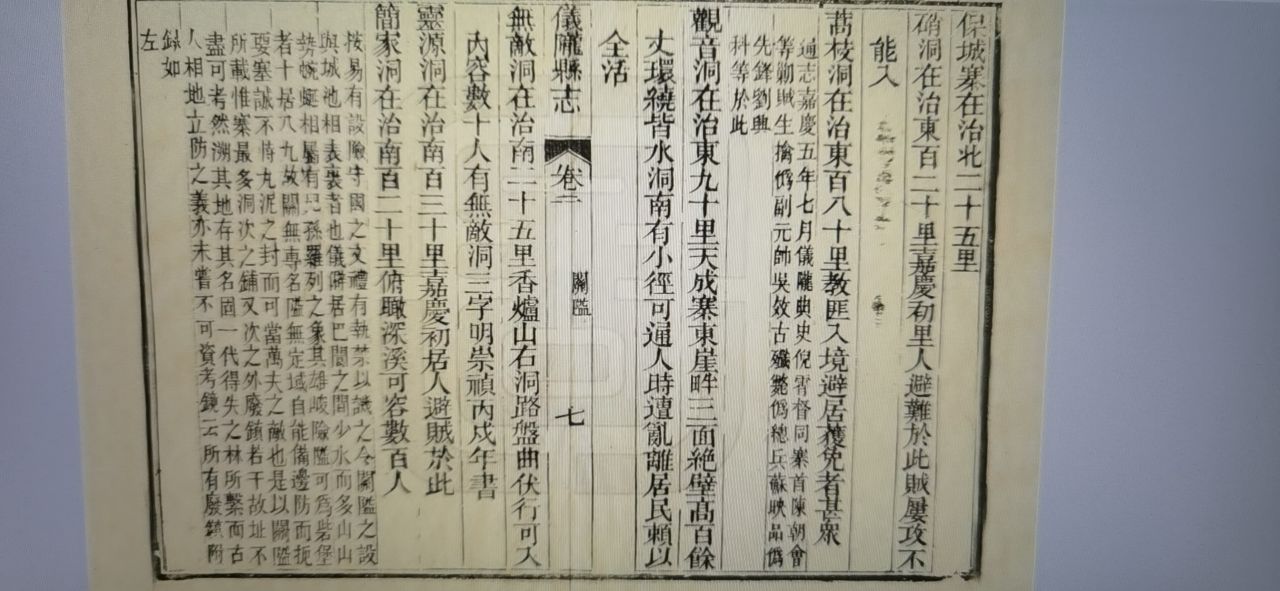 保城寨在治北二十五里
硝洞在治東百二十里嘉慶初里人避難於此賊屢攻不
能入
蒿枝洞在治東百八十里教匪入境避居獲免者甚衆
通志嘉慶五年七月儀隴典史倪霄督同寨首陳朝會
等勦賊生擒僞副元帥吳效古殲斃僞總兵蘇映品僞
先鋒劉興
科等於此
觀音洞在治東九十里天成寨東崖畔三面絶壁高百餘
丈環繞皆水洞南有小徑可通人時遭亂離居民賴以
全活
儀隴縣志
卷二
關隘
七
無敵洞在治南二十五里香爐山右洞路盤曲伏行可入
內容數十人有無敵洞三字明崇禎丙戍年書
靈源洞在治南百三十里嘉慶初居人避賊於此
簡家洞在治南百二十里俯瞰深溪可容數百人
按易有設險守國之文禮有執禁以譏之令關隘之設
與城池相表裏者也儀隴居巴閬之間少水而多山山
勢蜿蜒相屬有兒孫羅列之象其雄峻險隘可爲砦堡
者十居八九故關無專名隘無定域自能備邊防而扼
要塞誠不恃丸泥之封而可當萬夫之敵也是以關隘
所載惟寨最多洞次之鋪又次之外廢鎮若干故址不
盡可考然溯其地存其名固一代得失之林所繫而古
人相地立防之義亦未嘗不可資考鏡云所有廢鎮附
録如
左